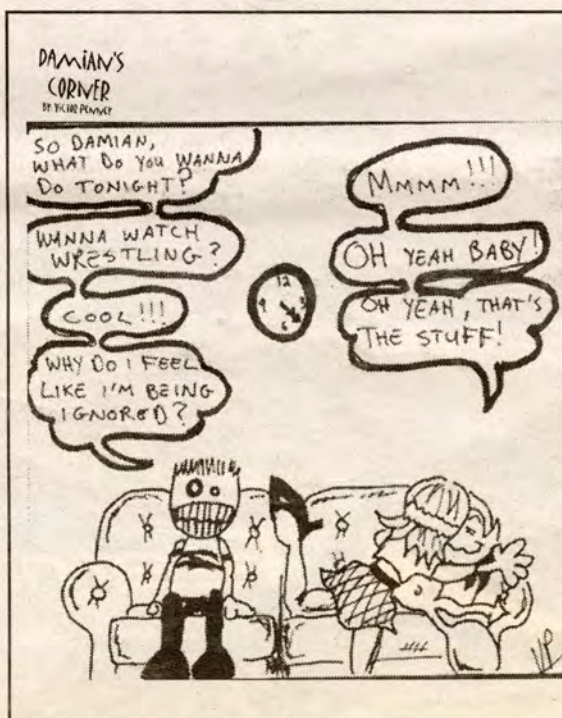 DAMIAN'S
CORNER
BY VICTOR PENNEY
SO DAMIAN,
WHAT DO YOU WANNA
DO TONIGHT?
WANNA WATCH
WRESTLING?
COOL!!!
WHY DO I FEEL
LIKE I'M BEING
IGNORED?
MMMM!!!
OH YEAH BABY!
OH YEAH, THAT'S
THE STUFF!
12
9
3
6
VP